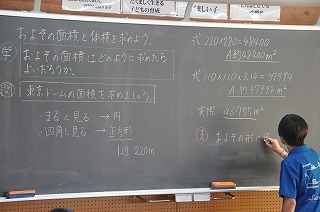 たくましく生きる
子どもの育成
美しい子
およその面積と体積を求めよう。
学 およその面積はどのように求めたら
よいだろうか。
問 東京ドームの面積を求めましょう。
・まると見る → 円
・四角と見る → 正方形
1辺 220m
式 220×220=48400
A 約48400m²
式 110×110×3.14=37994
A 約37994m²
実際 46755m²
ま およその形に